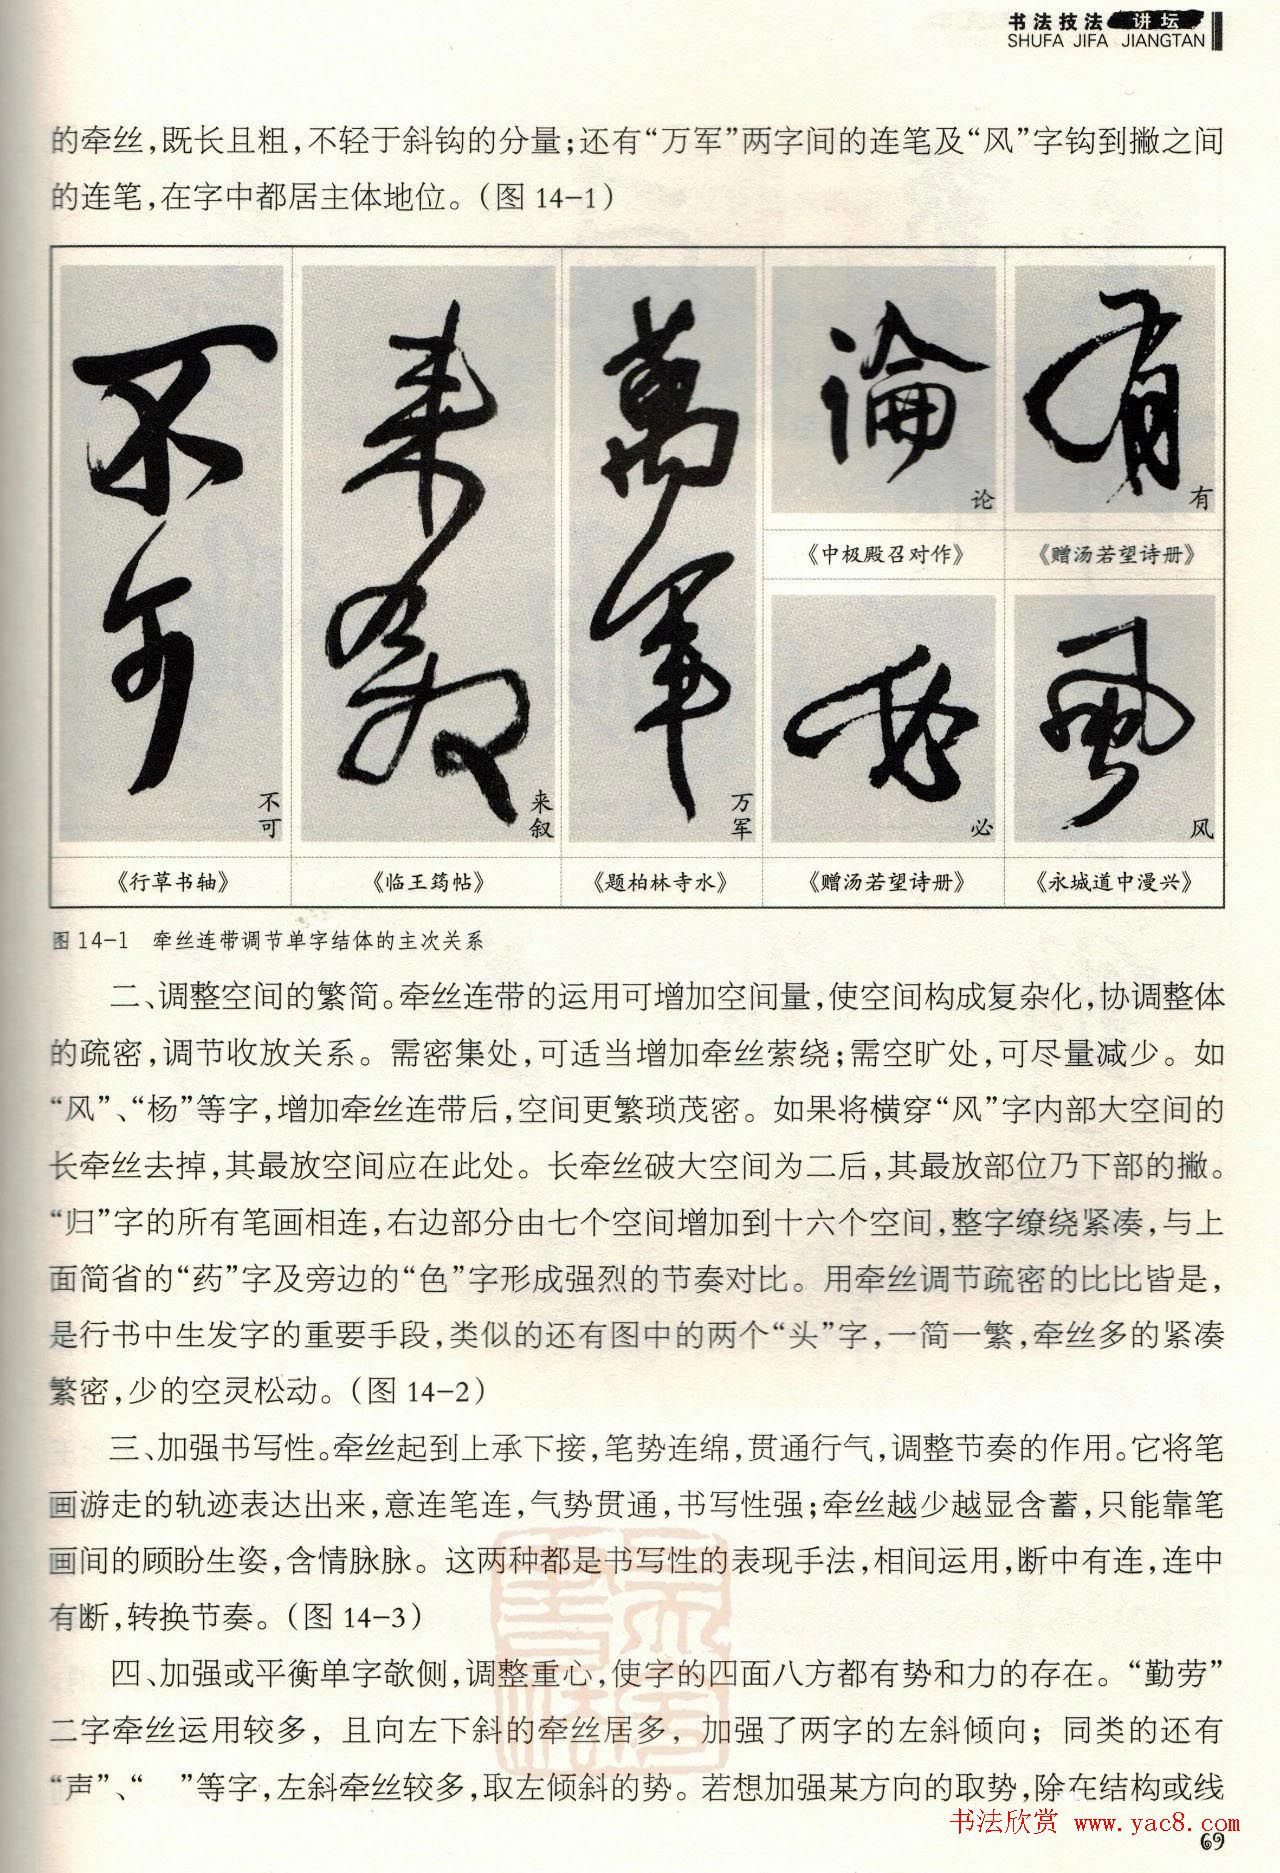 书法技法 讲坛
SHUFA JIFA JIANGTAN
的牵丝，既长且粗，不轻于斜钩的分量；还有“万军”两字间的连笔及“风”字钩到撇之间
的连笔，在字中都居主体地位。（图 14-1）
不可
不可
《行草书轴》
来叙
来叙
《临王筠帖》
萬軍
万军
《题柏林寺水》
論
论
《中极殿召对作》
有
有
《赠汤若望诗册》
必
必
《赠汤若望诗册》
風
风
《永城道中漫兴》
图 14-1 牵丝连带调节单字结体的主次关系
二、调整空间的繁简。牵丝连带的运用可增加空间量，使空间构成复杂化，协调整体
的疏密，调节收放关系。需密集处，可适当增加牵丝萦绕；需空旷处，可尽量减少。如
“风”、“杨”等字，增加牵丝连带后，空间更繁琐茂密。如果将横穿“风”字内部大空间的
长牵丝去掉，其最放空间应在此处。长牵丝破大空间为二后，其最放部位乃下部的撇。
“归”字的所有笔画相连，右边部分由七个空间增加到十六个空间，整字缭绕紧凑，与上
面简省的“药”字及旁边的“色”字形成强烈的节奏对比。用牵丝调节疏密的比比皆是，
是行书中生发字的重要手段，类似的还有图中的两个“头”字，一简一繁，牵丝多的紧凑
繁密，少的空灵松动。（图 14-2）
三、加强书写性。牵丝起到上承下接，笔势连绵，贯通行气，调整节奏的作用。它将笔
画游走的轨迹表达出来，意连笔连，气势贯通，书写性强；牵丝越少越显含蓄，只能靠笔
画间的顾盼生姿，含情脉脉。这两种都是书写性的表现手法，相间运用，断中有连，连中
有断，转换节奏。（图 14-3）
四、加强或平衡单字欹侧，调整重心，使字的四面八方都有势和力的存在。“勤劳”
二字牵丝运用较多，且向左下斜的牵丝居多，加强了两字的左斜倾向；同类的还有
“声”、“ ”等字，左斜牵丝较多，取左倾斜的势。若想加强某方向的取势，除在结构或线
书法欣赏 www.yac8.com
69